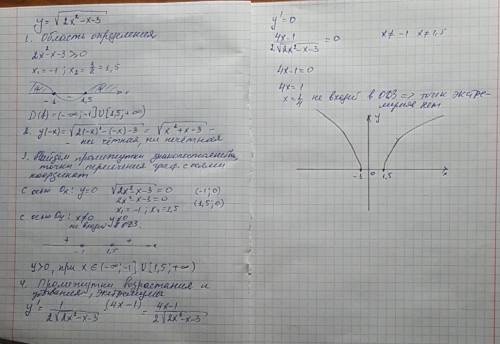 y = √(2x² - x - 3)
1. Область определения
2x² - x - 3 ≥ 0
x₁ = -1 ; x₂ = 3/2 = 1,5
-1 1,5 x
D(y) = (-∞; -1] ∪ [1,5; +∞)
2. y(-x) = √(2(-x)² - (-x) - 3) = √(2x² + x - 3) -
- ни чётная, ни нечётная
3. Найдем промежутки знакопостоянства,
точки пересечения граф. с осями
координат
С осью Ox: y=0 √(2x² - x - 3) = 0 (-1; 0)
2x² - x - 3 = 0 (1,5; 0)
x₁ = -1 ; x₂ = 1,5
С осью Oy: x≠0 y≠0
не входят в ОДЗ.
+ +
-1 1,5 x
y>0, при x ∈ (-∞; -1] ∪ [1,5; +∞)
4. Промежутки возрастания и
убывания, экстремумы
y' = 1/(2√(2x² - x - 3)) · (4x - 1) = (4x - 1)/(2√(2x² - x - 3))
y' = 0
(4x - 1)/(2√(2x² - x - 3)) = 0 x ≠ -1 x ≠ 1,5
4x - 1 = 0
4x = 1
x = 1/4 не входит в ОДЗ => точек экстре-
мумов нет
y
-1 0 1,5 x